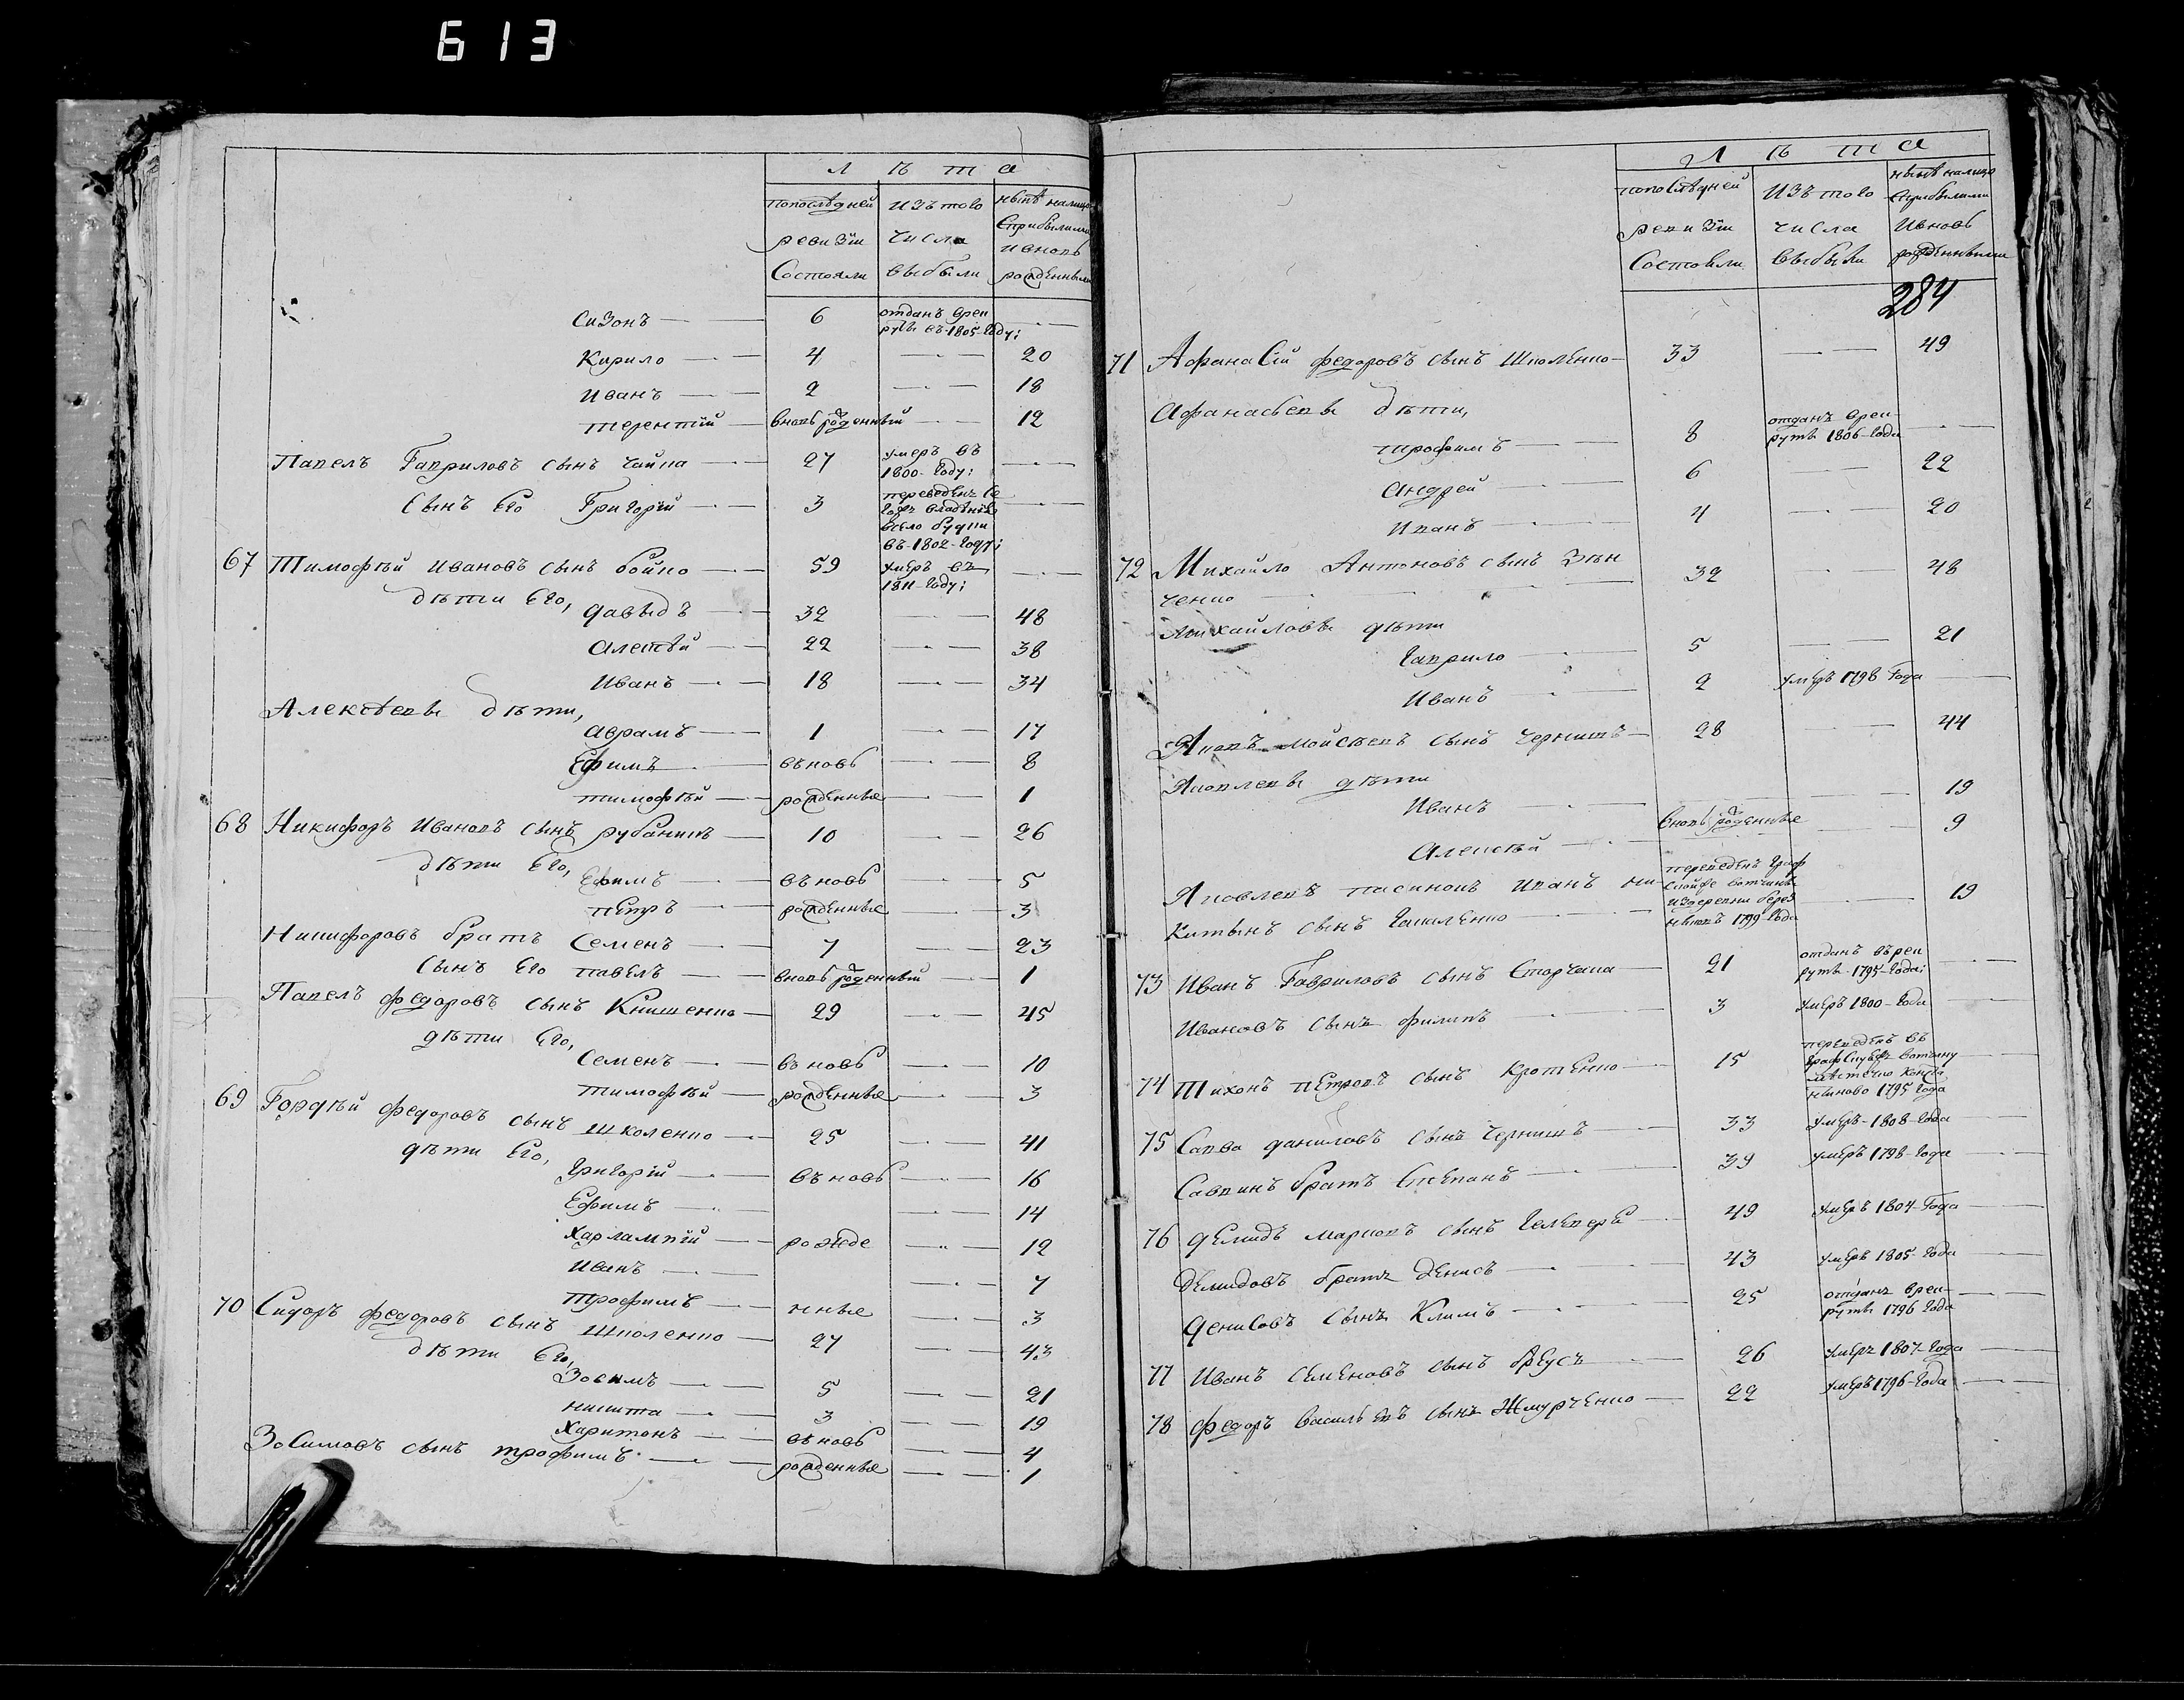 613
Л ѣ т а
попослѣдней ревизіи состояли
изъ того числа выбыли
нынѣ налицо сприбылими ивновь рожденными
Сизонъ 6 отданъ врекруты въ 1805 году;
Кирило 4 20
Иванъ 2 18
терентій вновь рожденный 12
Павелъ Гавриловъ сынъ чайка 27 умеръ въ 1800 году;
сынъ Его Григорій 3 переведенъ владѣніе въ 1802 году;
67 Тимофѣй Ивановъ сынъ бойко 59 умеръ въ 1811 году;
дѣти Его, давыдъ 32 48
Алексѣй 22 38
Иванъ 18 34
Алексѣевы дѣти,
Аврамъ 1 17
Ефимъ въновь 8
тимофѣй рожденные 1
68 Никифоръ Ивановъ сынъ рубаникъ 10 26
дѣти Его, Ефимъ въновь 5
петръ рожденные 3
Никифоровъ братъ Семенъ 7 23
Сынъ Его павелъ вновь рожденный 1
Павелъ федоровъ сынъ Книшенко 29 45
дѣти Его,
Семенъ въновь 10
тимофѣй рожденные 3
69 Гордѣй федоровъ сынъ школенко 25 41
дѣти Его,
Григорій въновь 16
Ефимъ 14
Харлампій рожде 12
Иванъ 7
Трофимъ нные 3
70 Сидоръ федоровъ сынъ школенко 27 43
дѣти Его,
Зосимъ 5 21
никита 3 19
Харитонъ въновь 4
Зосимовъ сынъ трофимъ рожденные 1
Л ѣ т а
попослѣдней ревизіи состояли
изъ того числа выбыли
нынѣ налицо сприбылими ивновь рожденными
284
71 Афанасій федоровъ сынъ школенко 33 49
Афанасьевы дѣти,
трофимъ 8 отданъ врекруты 1806 года
Андрей 6 22
Иванъ 4 20
72 Михайло Антоновъ сынъ Зѣнченко 32 48
Михайловы дѣти
Гаврило 5 21
Иванъ 2 умеръ 1798 Года
Яковъ Мойсѣевъ сынъ чернишъ 28 44
Яковлевы дѣти
Иванъ 19
Алексѣй вновь рожденные 9
Яковлевъ пасинокъ Иванъ никитынъ сынъ Гапченко переведенъ 1799 года 19
73 Иванъ Гавриловъ сынъ Сторчака 21 отданъ върекруты 1795 года;
Ивановъ сынъ филипъ 3 умеръ 1800 года
74 Тихонъ петровъ сынъ кротенко 15 переведенъ въ вотчину мѣстечко 1795 года
75 Савва даниловъ сынъ чернишъ 33 умеръ 1808 года
Саввинъ братъ степанъ 39 умеръ 1798 года
76 демидъ марковъ сынъ 49 умеръ 1804 Года
демидовъ братъ денисъ 43 умеръ 1805 года
денисовъ сынъ Климъ 25 отданъ врекруты 1796 года
77 Иванъ семеновъ сынъ бреусъ 26 умеръ 1807 года
78 федоръ васильевъ сынъ Жмурченко 22 умеръ 1796 года